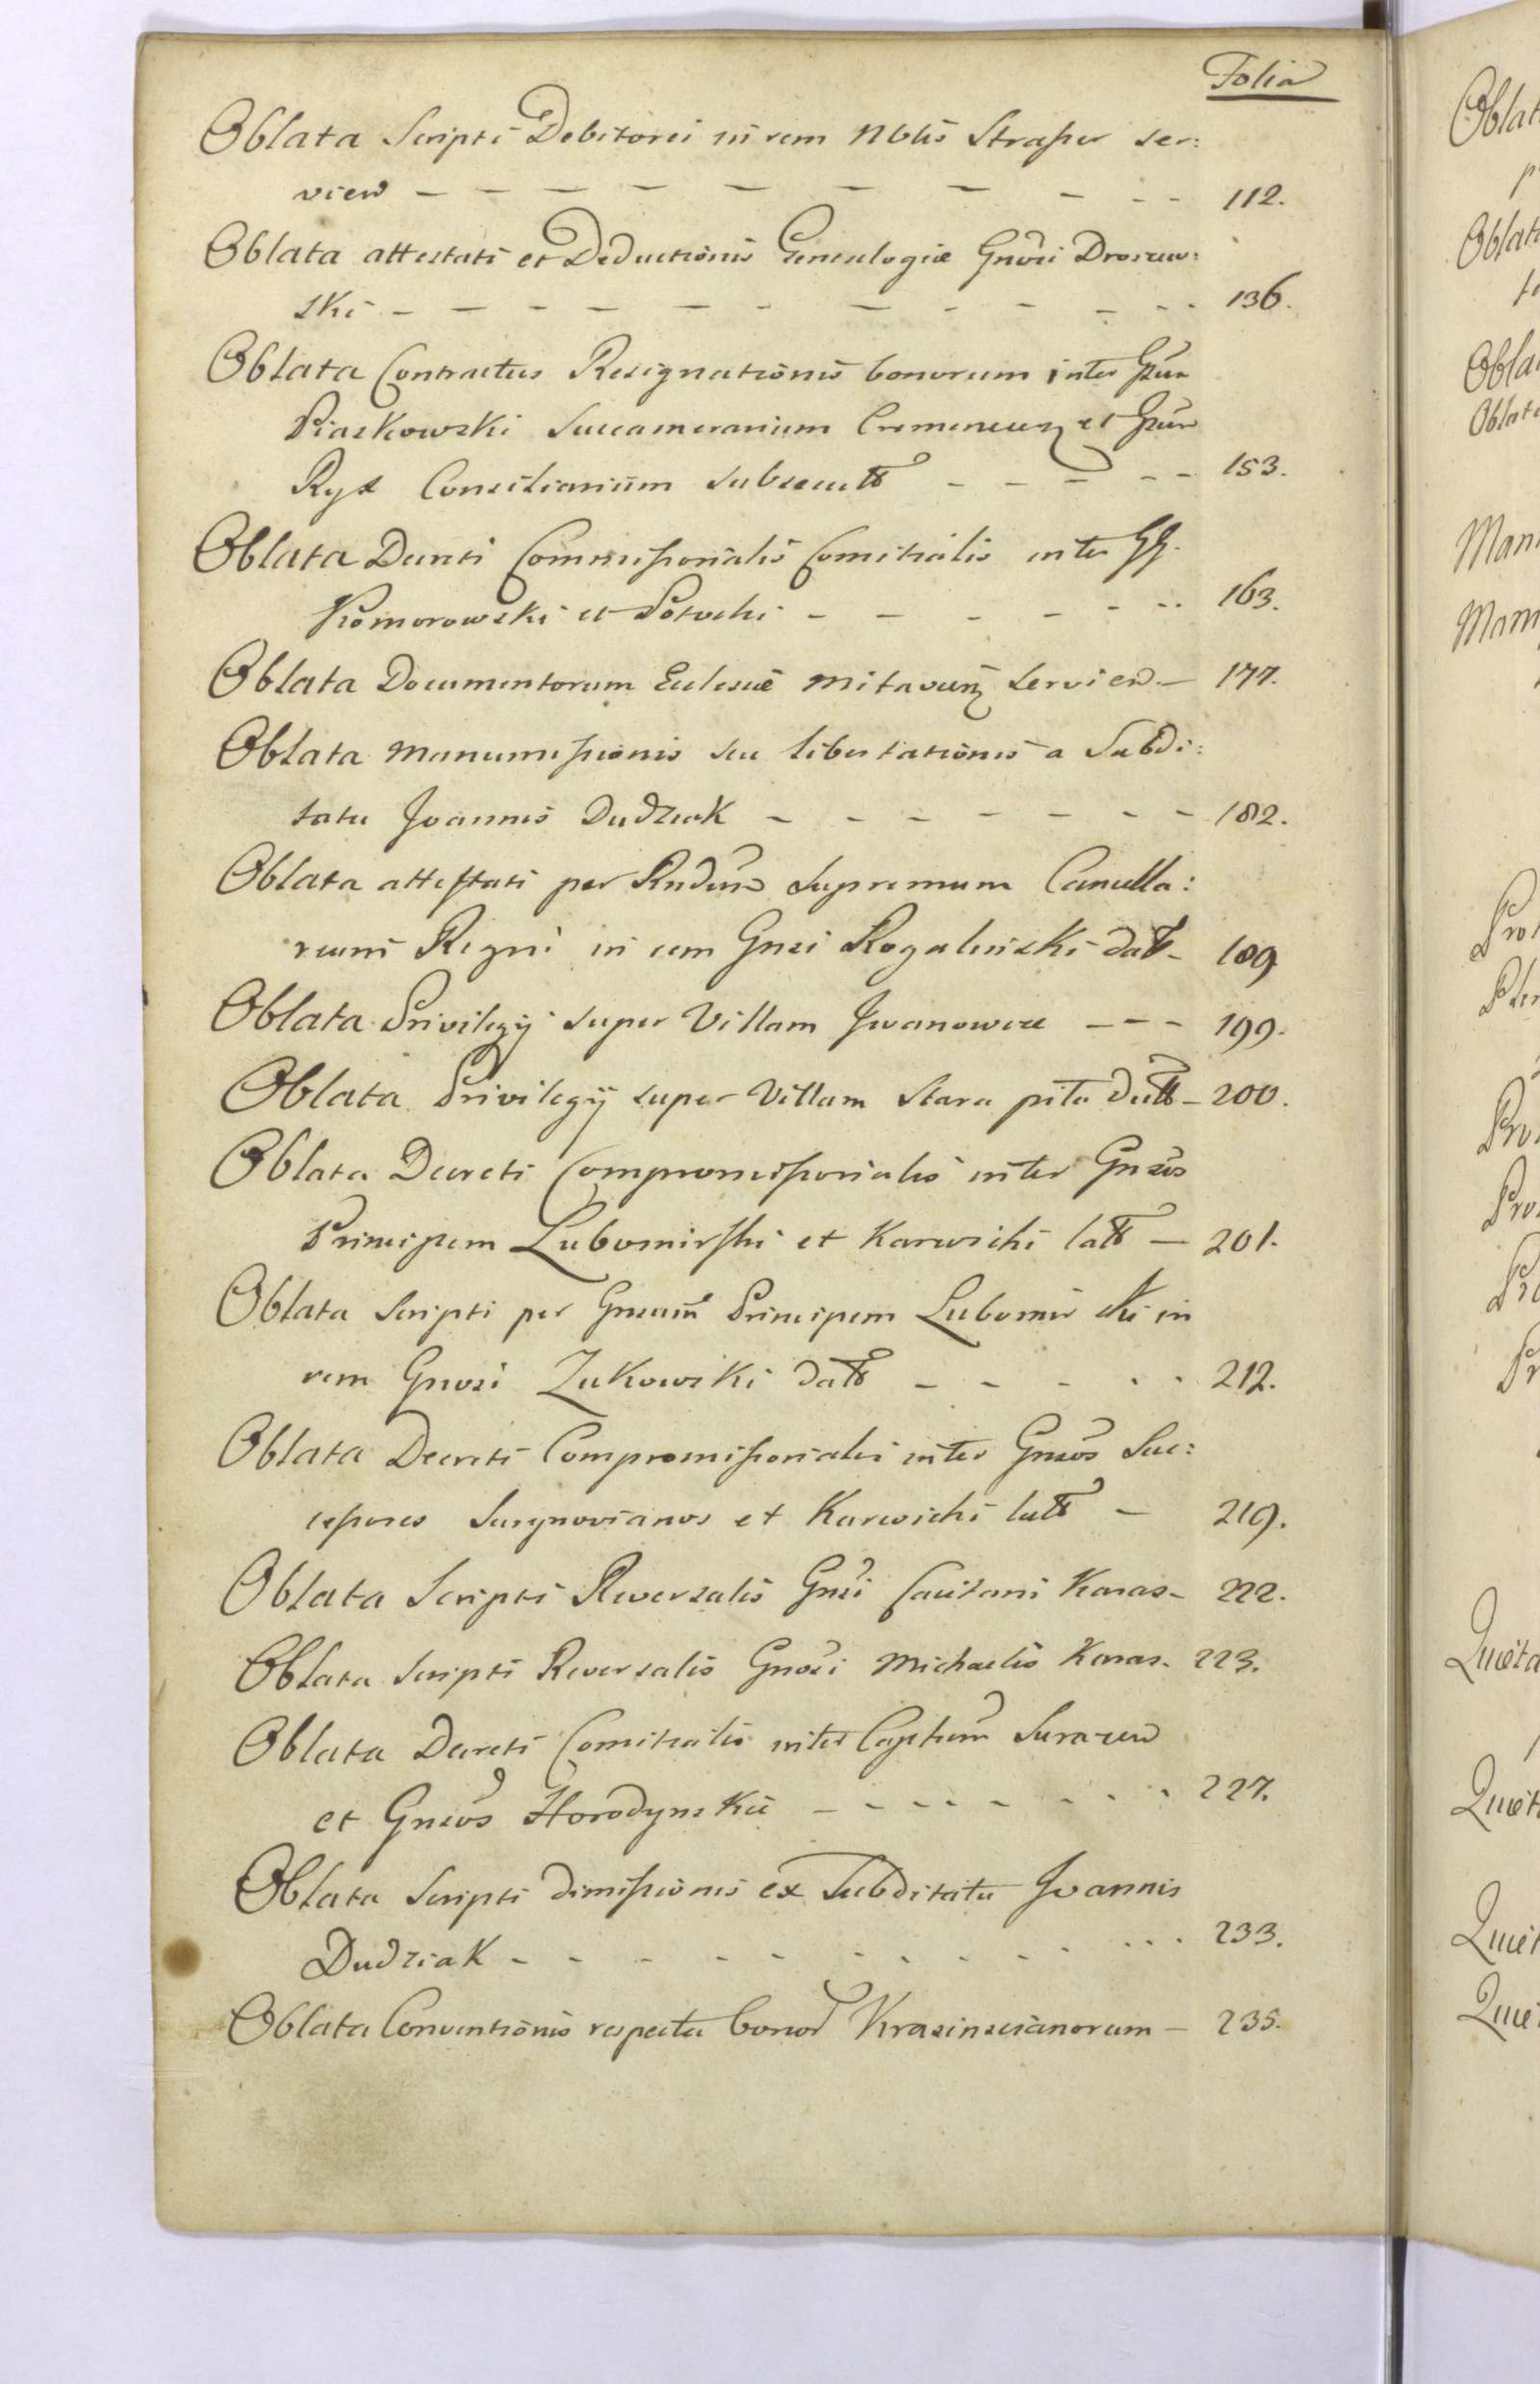 Folia
Oblata Scripti Debitorei in rem Nblis Straszer ser:
vien — — — — — — — — - - 112.
Oblata attestati et Deductionis Genealogiæ Gnosi Drozew:
ski - — — — — - — - - — - - 136.
Oblata Contractus Resignationis bonorum inter Gsum
Piaskowski Succamerarium Cremenecen et Gsum
Ryx Consiliarium subsecutt - - - - - 153.
Oblata Decreti Commissorialis Comitialis inter GG.
Komorowski et Potocki - — - - - - 163.
Oblata Documentorum Ecclesiæ Mitavien servien — 177.
Oblata Manumissionis seu libertationis a Subdi:
tatu Joannis Dudziak - - - - - - - 182.
Oblata attestati per Rndum Supremum Cancella:
rium Regni in rem Gnsi Rogalinski datt - 189
Oblata Privilegij super Villam Iwanowce — - - 199.
Oblata Privilegij super Villam Stara pita datt - 200.
Oblata Decreti Compromissorialis inter Gnsos
Principem Lubomirski et Karwicki latt — 201.
Oblata Scripti per Gnsum Principem Lubomirski in
rem Gnosi Zukowski datt - - - - - 212.
Oblata Decreti Compromissorialis inter Gnsos Suc:
cessores Surynovianos et Karwicki latt — 219.
Oblata Scripti Reversalis Gnsi Caietani Karas - 222.
Oblata Scripti Reversalis Gnosi Michaelis Karas - 223.
Oblata Decreti Comitialis inter Capitum Surazen
et Gnsos Horodynskie - - - - - - - - 227.
Oblata Scripti dimissionis ex Subditatu Joannis
Dudziak - - - - - - - - - - - - 233.
Oblata Conventionis respectu bonor Krasinscianorum — 235.